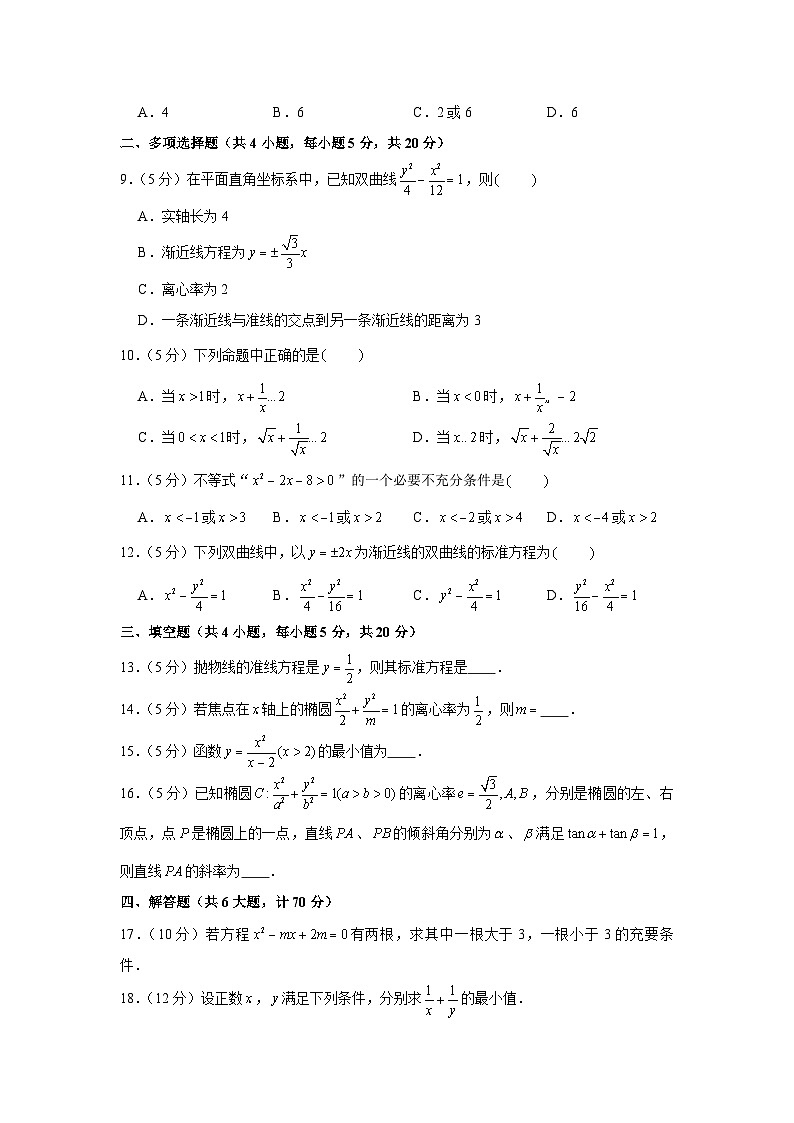 A.4 B.6 C.2或6 D.6
二、多项选择题(共4小题,每小题5分,共20分)
9.(5分)在平面直角坐标系中,已知双曲线 y²/4 − x²/12 = 1,则( )
A.实轴长为4
B.渐近线方程为 y = ± √3/3 x
C.离心率为2
D.一条渐近线与准线的交点到另一条渐近线的距离为3
10.(5分)下列命题中正确的是( )
A.当 x >1时, x + 1/x ...2 B.当 x < 0 时, x + 1/x „ − 2
C.当 0 < x <1时, √x + 1/√x ...2 D.当 x...2 时, √x + 2/√x ...2√2
11.(5分)不等式“ x² − 2x − 8 > 0 ”的一个必要不充分条件是( )
A. x < −1或 x > 3 B. x < −1或 x > 2 C. x < −2 或 x > 4 D. x < −4 或 x > 2
12.(5分)下列双曲线中,以 y = ±2x 为渐近线的双曲线的标准方程为( )
A. x² − y²/4 = 1 B. x²/4 − y²/16 = 1 C. y² − x²/4 = 1 D. y²/16 − x²/4 = 1
三、填空题(共4小题,每小题5分,共20分)
13.(5分)抛物线的准线方程是 y = 1/2 ,则其标准方程是____.
14.(5分)若焦点在 x 轴上的椭圆 x²/2 + y²/m = 1 的离心率为 1/2 ,则 m = ____.
15.(5分)函数 y = x²/(x − 2) (x > 2) 的最小值为____.
16.(5分)已知椭圆 C : x²/a² + y²/b² = 1(a > b > 0) 的离心率 e = √3/2 , A , B ,分别是椭圆的左、右
顶点,点 P 是椭圆上的一点,直线 PA 、 PB 的倾斜角分别为 α 、 β 满足 tan α + tan β = 1 ,
则直线 PA 的斜率为____.
四、解答题(共6大题,计70分)
17.(10分)若方程 x² − mx + 2m = 0 有两根,求其中一根大于3,一根小于3的充要条
件.
18.(12分)设正数 x , y 满足下列条件,分别求 1/x + 1/y 的最小值.